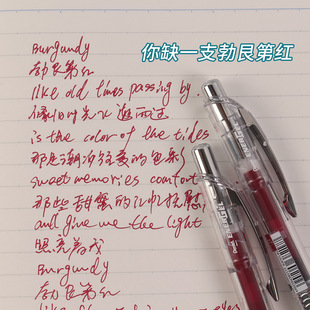 你缺一支勃艮第红
Burgundy
勃艮第红
like old times passing by
像旧时光飞逝而过
is the color of the tides
那是潮汐
的色彩
sweet memories comfort
那些甜蜜的
and give me the light
照亮着我
Burgundy
勃艮第红